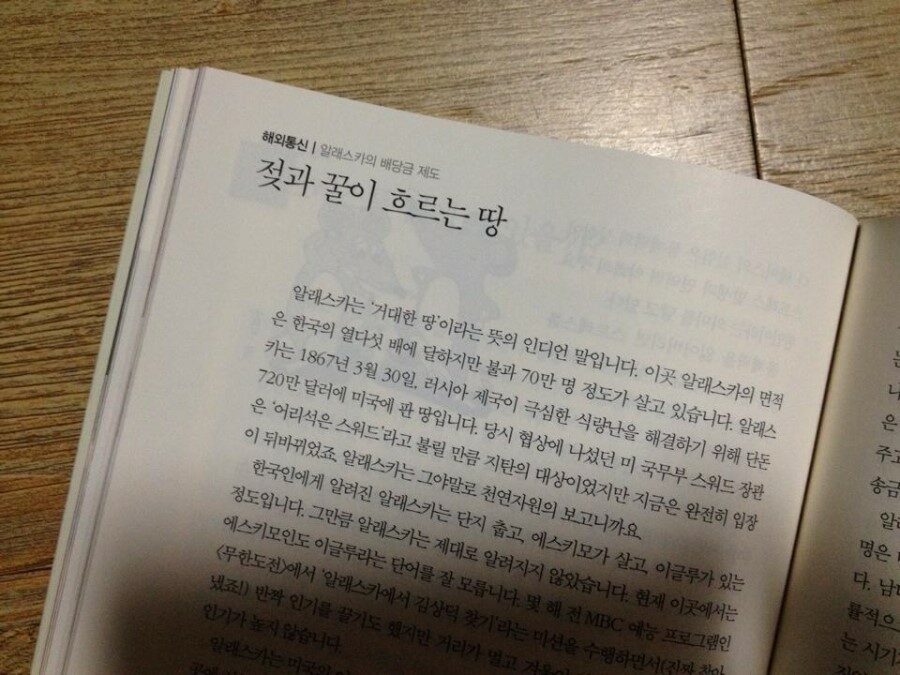 해외통신 | 알래스카의 배당금 제도
젖과 꿀이 흐르는 땅
알래스카는 '거대한 땅'이라는 뜻의 인디언 말입니다. 이곳 알래스카의 면적
은 한국의 열다섯 배에 달하지만 불과 70만 명 정도가 살고 있습니다. 알래스
카는 1867년 3월 30일, 러시아 제국이 극심한 식량난을 해결하기 위해 단돈
720만 달러에 미국에 판 땅입니다. 당시 협상에 나섰던 미 국무부 스워드 장관
은 '어리석은 스워드'라고 불릴 만큼 지탄의 대상이었지만 지금은 완전히 입장
이 뒤바뀌었죠. 알래스카는 그야말로 천연자원의 보고니까요.
한국인에게 알려진 알래스카는 단지 춥고, 에스키모가 살고, 이글루가 있는
정도입니다. 그만큼 알래스카는 제대로 알려지지 않았습니다. 현재 이곳에서는
에스키모인도 이글루라는 단어를 잘 모릅니다. 몇 해 전 MBC 예능 프로그램인
〈무한도전〉에서 '알래스카에서 김상덕 찾기'라는 미션을 수행하면서(진짜 찾아
냈죠!) 반짝 인기를 끌기도 했지만 거리가 멀고
인기가 높지 않습니다.
알래스카는 미국의
는
나
은
주고
송금
알
명은
다. 남
률적으
는 시기